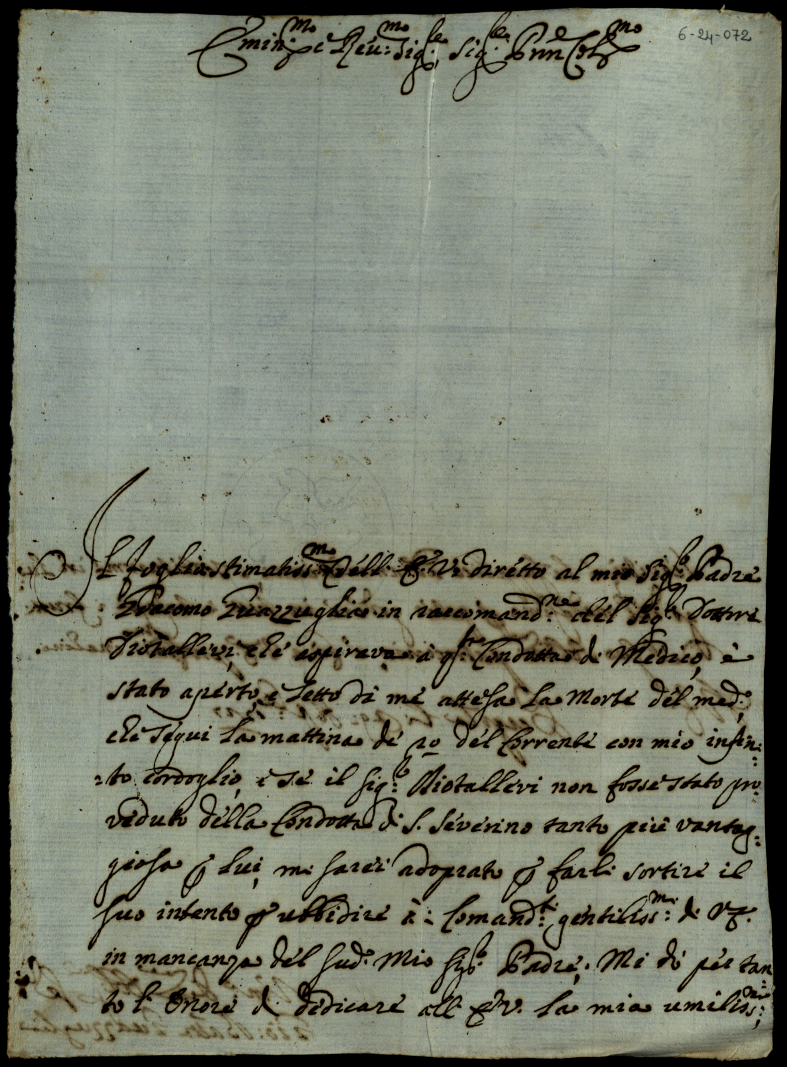 6-24-072
Emin.mo e Reu:mo Sig.re, Sig.re Prin Col.mo
Il foglio stimatiss.mo dell' E. V. diretto al mio Sig.r Padre
Giacomo Guazzuglia in raccomand.ne del Sig.r Dottore
Diotallevi, che aspirava à q.sta Condotta di Medico, è
stato aperto, e letto di me attesa la Morte del med.o,
che seguì la mattina de 10 del Corrente con mio infini:
:to cordoglio, e se il Sig.r Diotallevi non fosse stato pro:
veduto della Condotta di S. Severino tanto più vantag:
giosa p lui, mi sarei adoprato p farli sortire il
suo intento p ubbidire à i Comand.ti gentiliss.mi di V.E.
in mancanza del sud.o Mio Sig.r Padre; Mi dò per tan
to l' Onore di dedicare all' E.V. la mia umiliss.ma